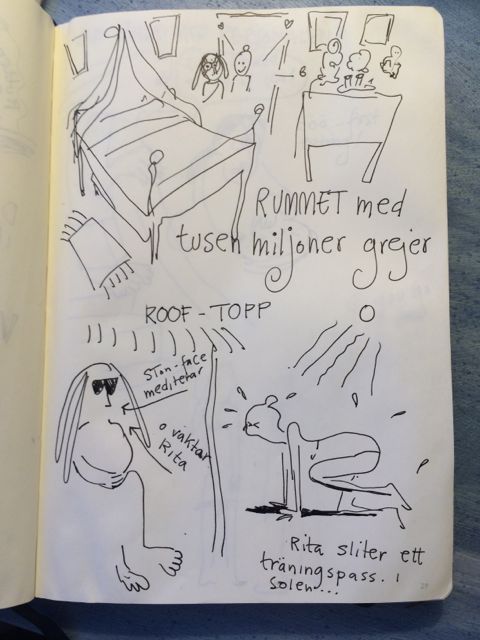 RUMMET med
tusen miljoner grejer
ROOF-TOPP
STON-face
mediterar
o väktar
Rita
Rita sliter ett
träningspass. i
solen...